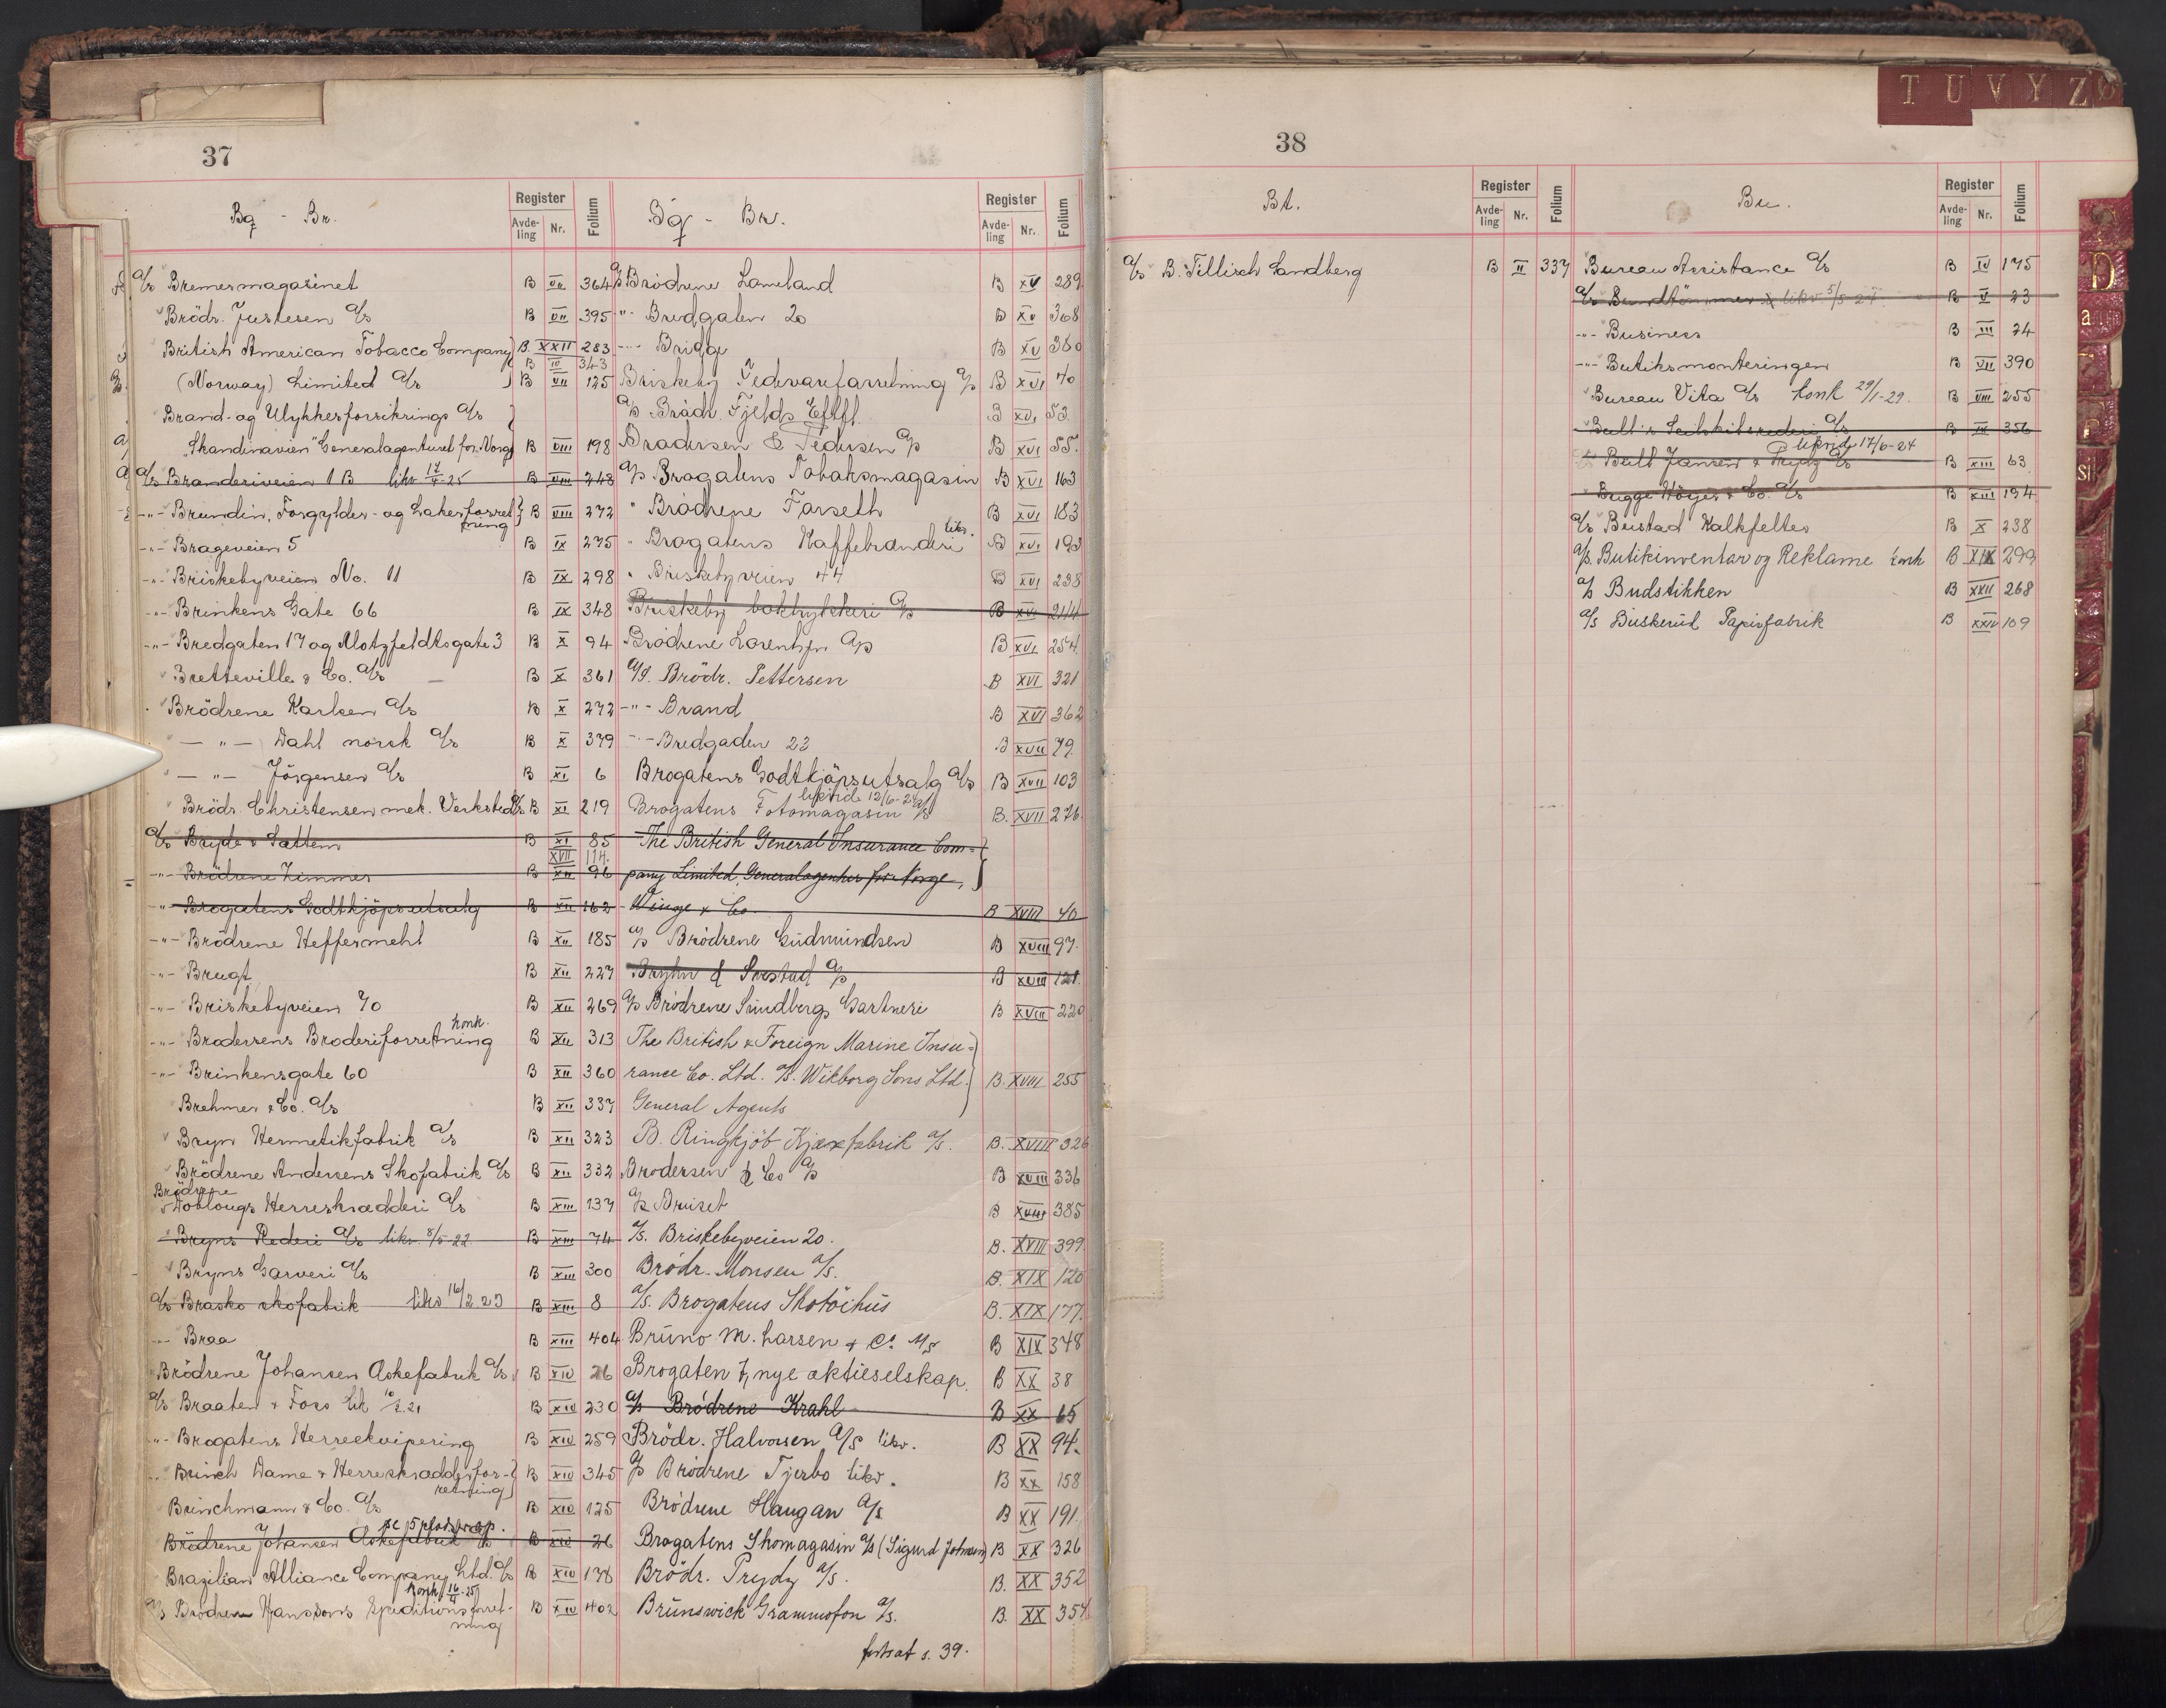 37
Bq - Br.
Register
Avde-
ling
Nr.
Folium
A/s Bremermagasinet B VII 364
Brödr. Justesen A/s B VII 395
British American Tobacco Company B. XXII 283
B IV 343
(Norway) Limited A/s B VII 125
Brand- og Ulykkesforsikrings A/s
"Skandinavien" Generalagenturet for Norge B VIII 198
A/s Branderiveien 1 B likv 17/4-25 B VIII 248
-"- Brundin, Forgylder- og Lakerforret
ning B VIII 272
-"- Brageveien 5 B IX 275
-"- Briskebyveien No. 11 B IX 298
-"- Brinkens Gate 66 B IX 348
-"- Bredgaten 17 og Motzfeldtsgate 3 B X 94
Bretteville & Co. A/s B X 361
Brödrene Karlsen A/s B X 272
-"- Dahl norsk A/s B X 379
-"- Jörgensen A/s B XI 6
Brödr. Christensen mek. Verksted A/s B XI 219
A/s Bryde & Sattem B XI 85
XVII 114.
-"- Brödrene Zimmer B XII 96
-"- Brogatens Godtkjöpsutsalg B XII 162
-"- Brödrene Heffermehl B XII 185
-"- Brugt B XII 227
-"- Briskebyveien 70 B XII 269
konk.
-"- Brodersens Broderiforretning B XII 313
-"- Brinkensgate 60 B XII 360
Brehmer & Co. A/s B XII 337
Bryn Hermetikfabrik A/s B XII 323
Brödrene Andersens Skofabrik A/s B XII 332
Brödrene
Doblougs Herreskrædderi A/s B XIII 137
Bryns Rederi A/s likv. 8/5-22 B XIII 74
Bryns Garveri A/s B XIII 300
A/s Brasko skofabrik likv 16/2.23 B XIII 8
-"- Braa B XIII 404
Brödrene Johansen Askefabrik A/s B XIV 26
A/s Braaten & Foss B XIV 230
-"- Brogatens Herreekvipering B XIV 259
-"- Brinch Dame & Herreskrædderfor-
retning B XIV 345
Brinchmann & Co. A/s B XIV 125
Brödrene Johansen Askefabrik A/s B XIV 26
Brazilian Alliance Company Ltd. A/s B XIV 138
konk 16/4-25
A/s Brödrene Hanssons Speditionsforret-
ning B XIV 402
Bq - Br.
Register
Avde-
ling
Nr.
Folium
A/s Brödrene Lameland B XV 289
"- Bredgaten 20 B XV 368
-"- Brigg B XV 380
Briskeby Fedevareforretning A/s B XVI 40
A/s Brödr. Fjelds Eftflg. B XVI 53.
Brodersen & Pedersen A/s B XVI 55.
A/s Brogatens Tobaksmagasin B XVI 163
" Brödrene Farseth B XVI 183
likv.
" Brogatens Kaffebrenderi B XVI 193
" Briskebyveien 44 B XVI 238
Briskeby boktrykkeri A/s B XVI 244
Brödrene Lorentzen A/s B XVI 254.
A/S. Brödr. Pettersen B XVI 321
-"- Brand B XVI 362
-"- Bredgaden 22 B XVII 79.
Brogatens Godtkjöpsutsalg A/s B XVII 103
Brogatens Fotomagasin A/s B. XVII 276.
The British General Insurance Com-
pany Limited, Generalagentur for Norge,
Winge & Co. B XVIII 40
A/s Brödrene Gudmundsen B XVIII 97.
Bryhn & Sorstad A/s B XVIII 121.
A/s Brödrene Sundbergs Gartneri B XVIII 220
The British & Foreign Marine Insu-
rance Co. Ltd. A/S. Wikborg Sons Ltd. B. XVIII 255
General Agents
B. Ringkjöb Kjexfabrik A/s. B. XVIII 326
Brodersen & Co A/s B XVIII 336
A/s Bruset B XVIII 385
A/s. Briskebyveien 20. B. XVIII 399.
Brödr. Monsen A/s. B. XIX 120
A/s. Brogatens Skotöihus B. XIX 177.
Bruno M. Larsen & Co A/S B XIX 348
Brogaten 7, nye aktieselskap. B XX 38
A/s Brödrene Krahl B XX 65
Brödr. Halvorsen A/S likv. B XX 94.
A/s Brödrene Tjerbo likv. B XX 158
Brödrene Haugan A/s B XX 191.
Brogatens Skomagasin A/s (Sigurd Johnsen) B XX 326
Brödr. Prydz A/s. B. XX 352
Brunswick Grammofon A/s. B. XX 354
fortsat s. 39.
38
Bt.
Register
Avde-
ling
Nr.
Folium
A/s B. Tillisch Sandberg B II 337
Bu.
Register
Avde-
ling
Nr.
Folium
Bureau Assistance A/s B IV 175
A/s Bundtömmer likv 5/5-24. B V 23
-"- Business B III 24
-"- Butiksmonteringen B VII 390
Bureau Vita A/s konk 29/1-29. B VIII 255
Bull's Seilskibsrederi A/s B IX 356
17/6-24
Bull Jansen & Prydz A/s B XIII 63
Bugge Höyer & Co. A/s B XIII 194
A/s Bustad Kalkfelter B X 238
A/s. Butikinventar og Reklame konk B XIX 299
A/s Budstikken B XXII 268
A/s Buskerud Papirfabrik B XXIV 109
T U V Y Z Ø
D